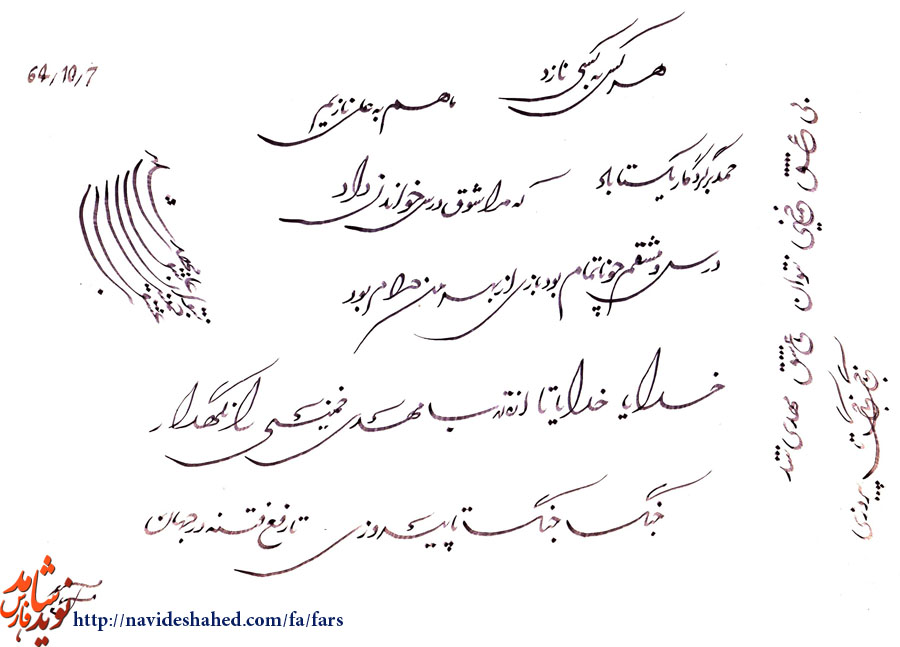 64/10/7
هر کس به کسی نازد
ما هم به علی نازیم
حمد بر کردگار یکتا باد
که مرا شوق درس خواندن داد
درس و مشقم چو ناتمام بود بازی از بهر من حرام بود
خدایا خدایا تا انقلاب مهدی خمینی را نگهدار
جنگ جنگ تا پیروزی تا رفع فتنه در جهان
بی عشق خمینی نتوان عاشق مهدی شد
جنگ جنگ تا پیروزی
نوید شاهد فارس
http://navideshahed.com/fa/fars